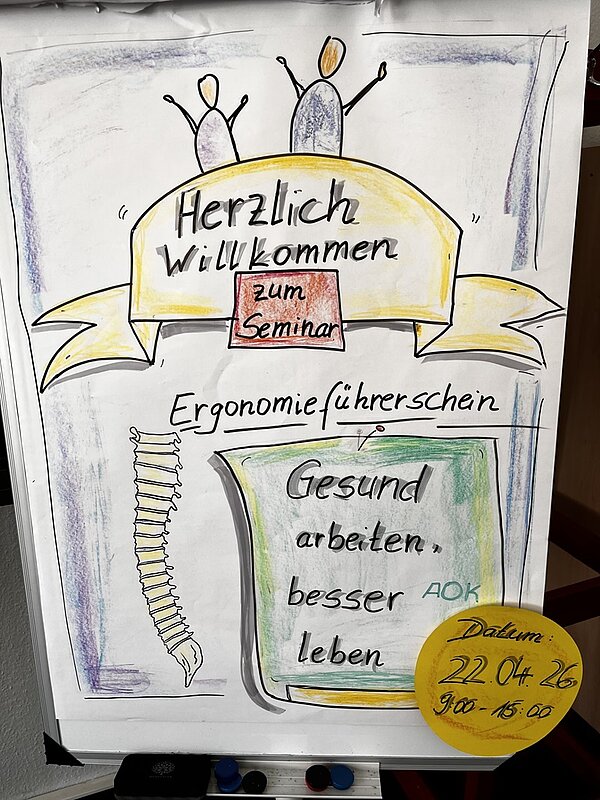 Herzlich
Willkommen
zum
Seminar
Ergonomieführerschein
Gesund
arbeiten,
besser
AOK
leben
Datum:
22.04.26
9:00 - 15:00